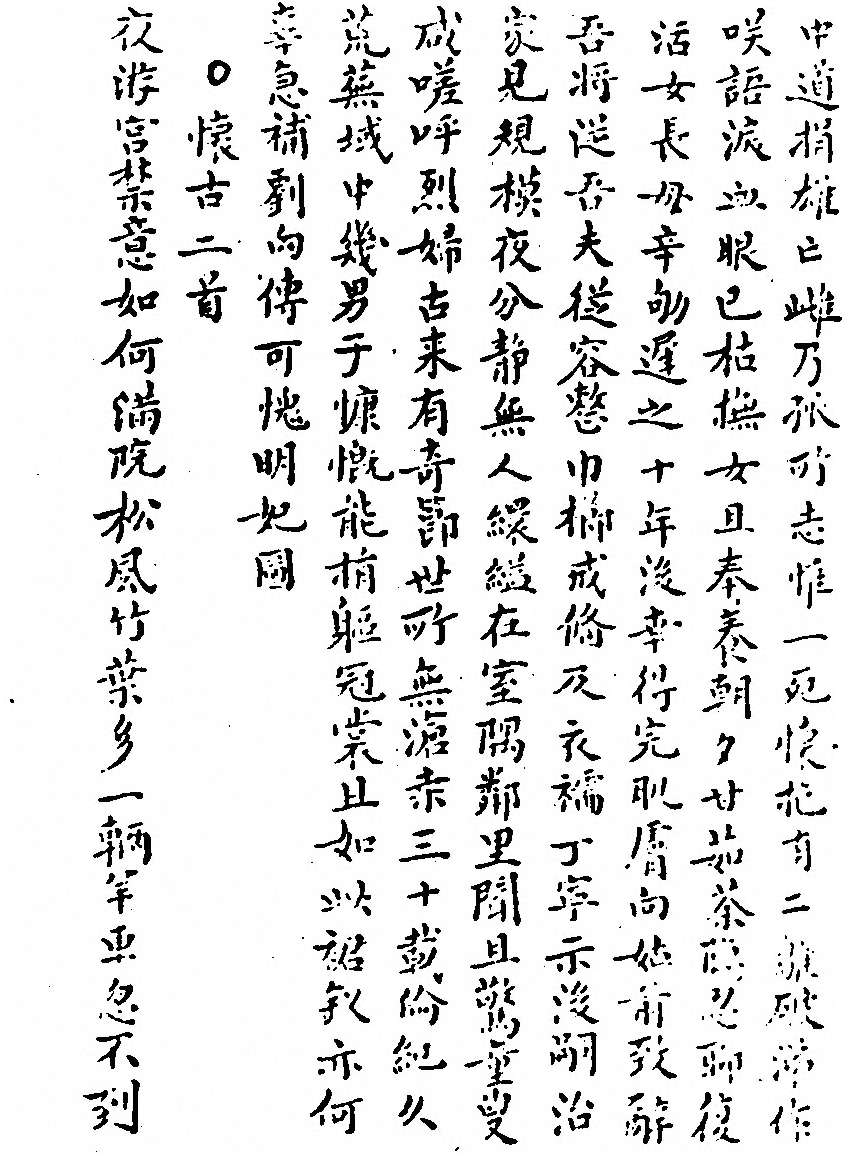 中道捐雄亡雌乃孤所志惟一死懷抱有二雛破涕作
咲語淚血眼已枯撫女且奉養朝夕甘茹荼隱忍聊復
活女長母辛劬遲之十年後幸得完肌膚向姑前致辭
吾將從吾夫從容整巾櫛戒脩及衣襦丁寧示後嗣治
家見規模夜分靜無人繯縊在室隅鄰里聞且驚童叟
咸嗟呼烈婦古来有奇節世所無滄桑三十載倫紀久
荒蕪域中幾男子慷慨能捐軀冠裳且如此裙釵亦何
辜急補劉向傳可愧明妃圖
○懷古二首
夜游宮禁意如何滿院松風竹葉多一輛羊車忽不到